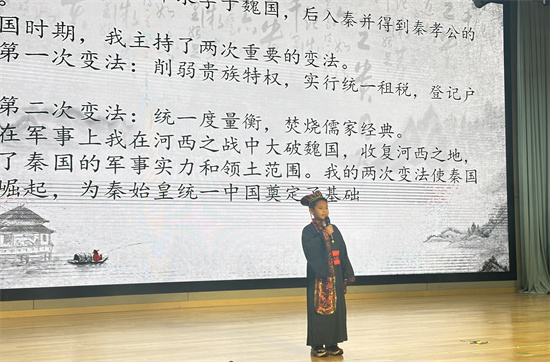 于魏国，后入秦并得到秦孝公的
国时期，我主持了两次重要的变法。
第一次变法：削弱贵族特权，实行统一租税，登记户
第二次变法：统一度量衡，焚烧儒家经典。
在军事上我在河西之战中大破魏国，收复河西之地，
了秦国的军事实力和领土范围。我的两次变法使秦国
崛起，为秦始皇统一中国奠定了基础